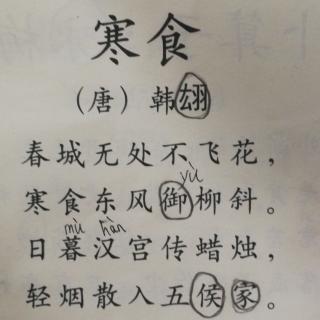 寒食
（唐）韩翃
春城无处不飞花，
yù
寒食东风御柳斜。
mù hàn
日暮汉宫传蜡烛，
轻烟散入五侯家。